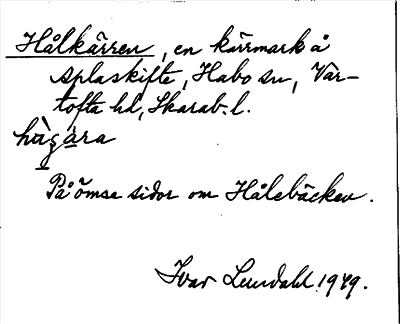 Hålkärren, en kärrmark å
splaskifte, Habo sn, Var-
tofta hd, Skarab. l.
På ömse sidor om Hålebäcken.
Ivar Lundahl 1949.